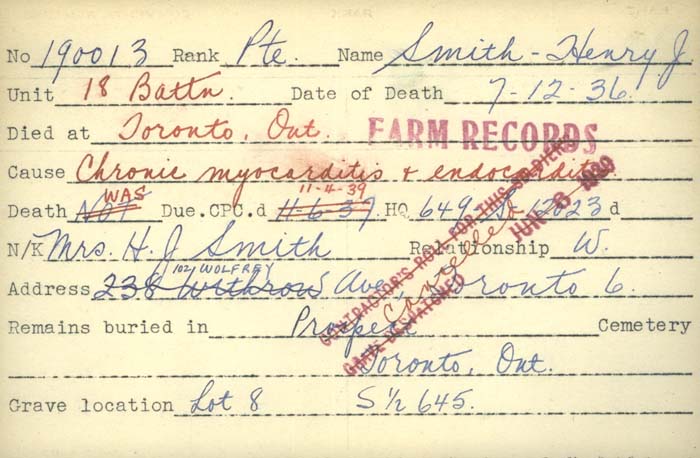 No 190013 Rank Pte. Name Smith - Henry J.
Unit 18 Battn. Date of Death 7-12-36.
Died at Toronto, Ont. FARM RECORDS
Cause Chronic myocarditis & endocarditis
WAS 11-4-39
Death NOT Due. CPC.d 11-6-37 HQ 649-S- 12023 d
N/K Mrs. H. J. Smith Relationship W.
102 WOLFREY
Address 238 Withrow Ave., Toronto 6.
CONTRACTOR'S ROLL FOR THIS SOLDIER'S
GRAVE DESPATCHED
Cancelled
JUN 13 1939
Remains buried in Prospect Cemetery
Toronto, Ont.
Grave location Lot 8 S 1/2 645.